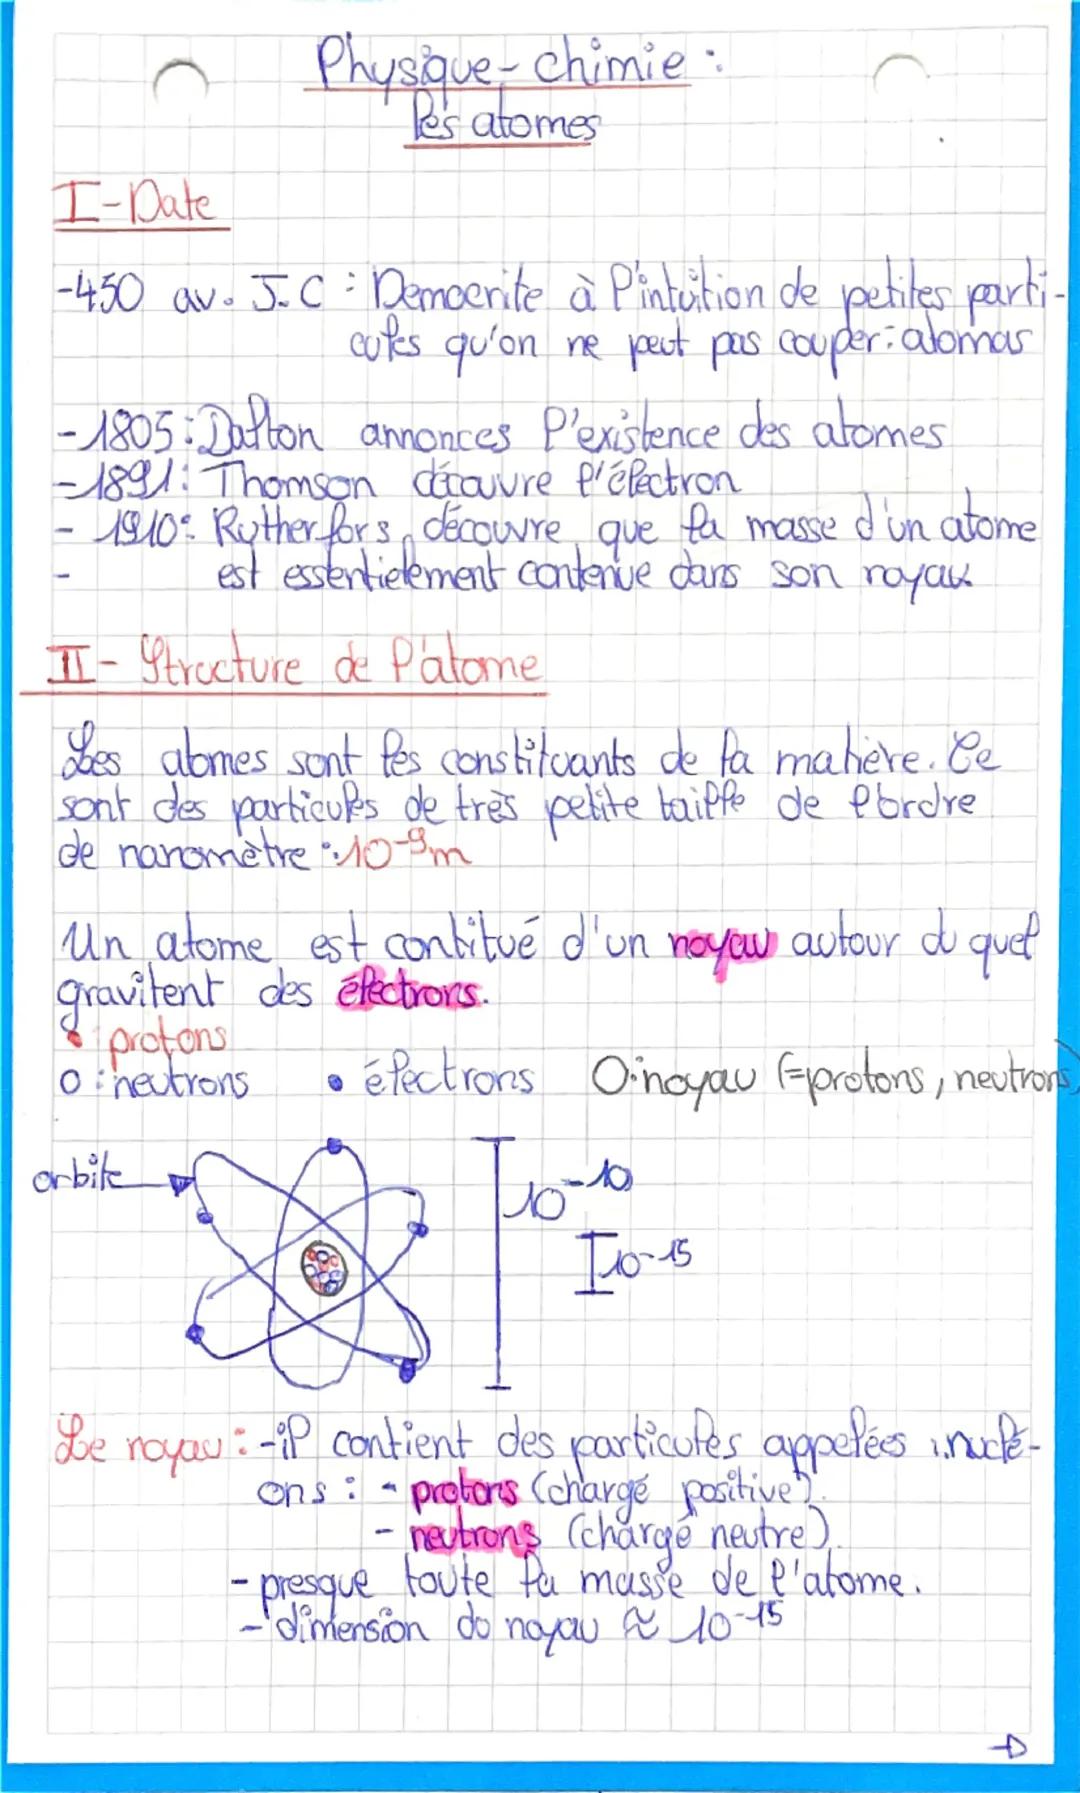 Physique-chimie :
les atomes
I-Date
-450 av. J.C : Democrite à l'intuition de petites parti-
cules qu'on ne peut pas couper : atomas
-1805 : Dalton annonces l'existence des atomes
-1891 : Thomson découvre l'électron
- 1910 : Rutherfors découvre que la masse d'un atome
- est essentielement contenue dans son noyau
II- Structure de l'atome
Les atomes sont les constituants de la matière. Ce
sont des particules de très petite taille de l'ordre
de nanomètre : 10-9m
Un atome est contitué d'un noyau autour du quel
gravitent des électrons.
• : protons
o : neutrons • électrons O : noyau (=protons, neutrons)
orbite
10-10
10-15
Le noyau : -il contient des particules appelées : nuclé-
ons : - protons (chargé positive).
- neutrons (chargé neutre).
- presque toute la masse de l'atome.
- dimension du noyau ≈ 10-15